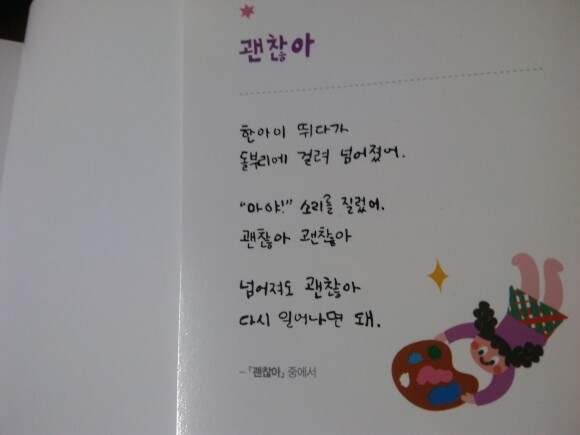 괜찮아
한아이 뛰다가
돌부리에 걸려 넘어졌어.
"아야!" 소리를 질렀어.
괜찮아 괜찮아
넘어져도 괜찮아
다시 일어나면 돼.
-「괜찮아」 중에서